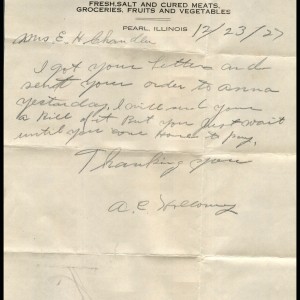 FRESH, SALT AND CURED MEATS,
GROCERIES, FRUITS AND VEGETABLES
PEARL, ILLINOIS 12/23/27
Mrs. E. H. Chandler
I got your letter and
sent your order to anna
yesterday, I will send you
a Bill of it But you just wait
until you come Home to pay.
Thanking you
A. E.